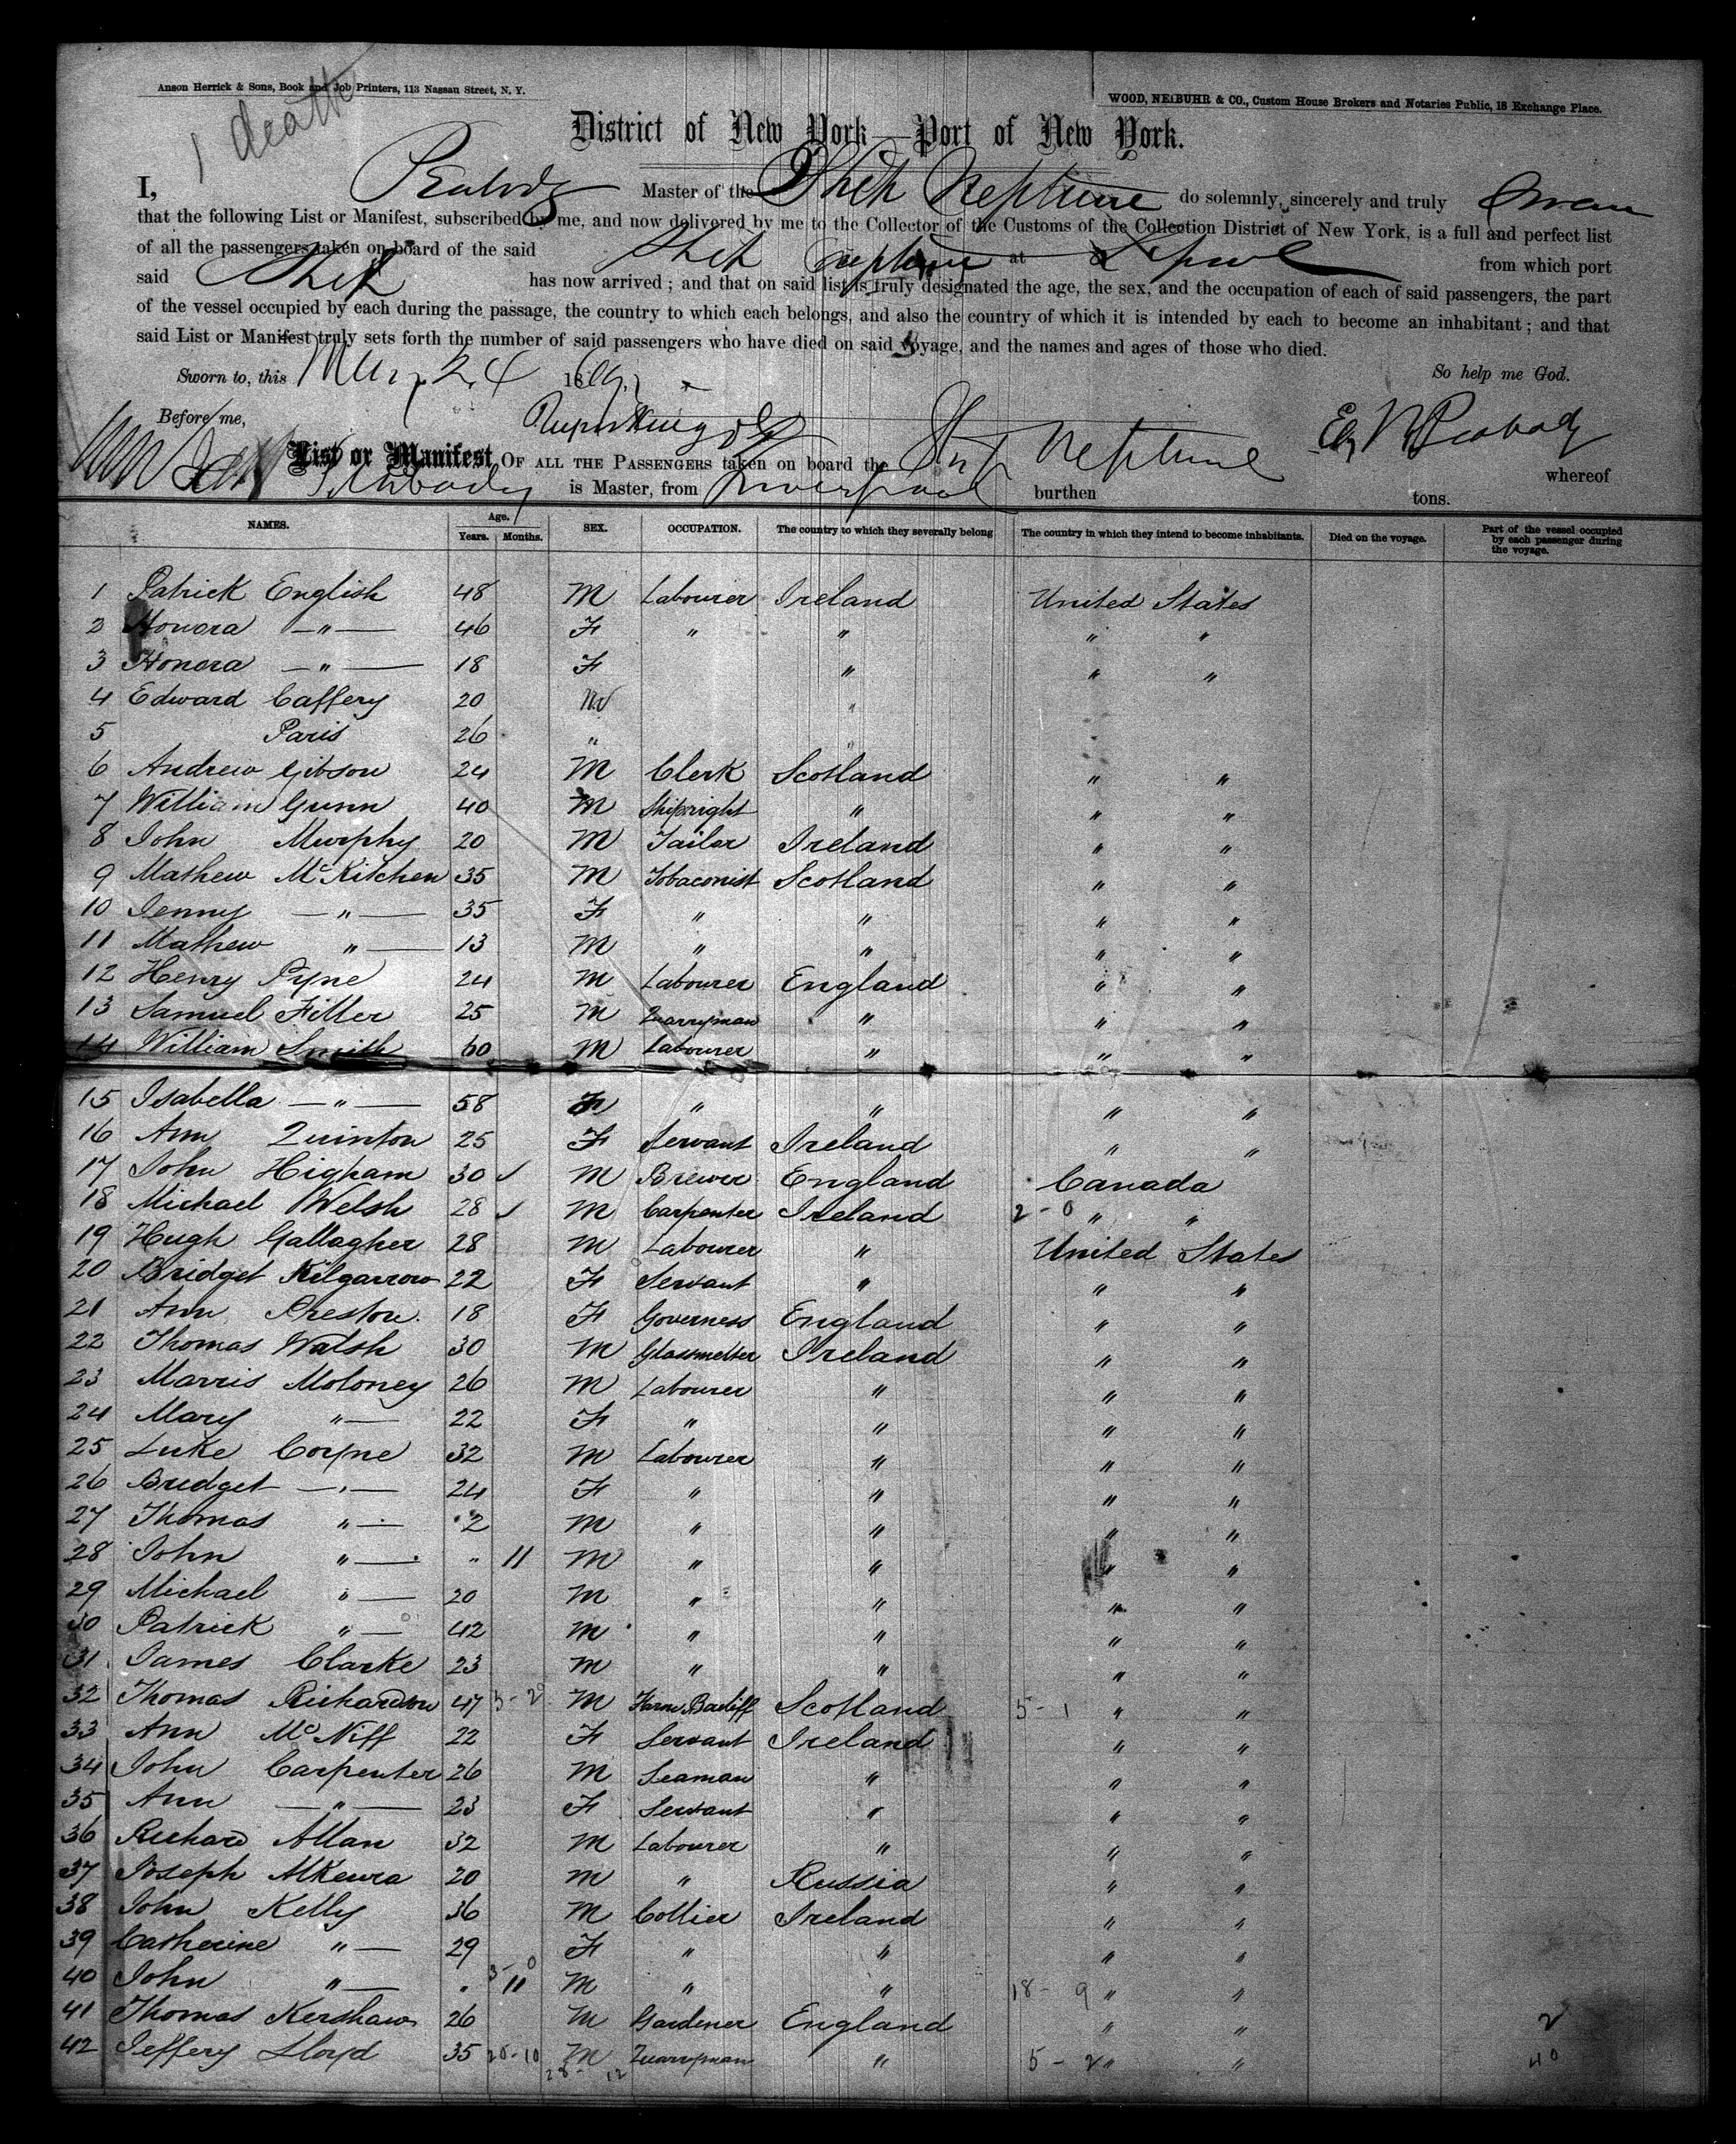 Anson Herrick & Sons, Book and Job Printers, 113 Nassau Street, N. Y.
WOOD, NEIBUHR & CO., Custom House Brokers and Notaries Public, 18 Exchange Place.
1 death
District of New York—Port of New York.
I, Peabody Master of the Ship Neptune do solemnly, sincerely and truly swear
that the following List or Manifest, subscribed by me, and now delivered by me to the Collector of the Customs of the Collection District of New York, is a full and perfect list
of all the passengers taken on board of the said Ship Neptune at Lpool from which port
said Ship has now arrived; and that on said list is truly designated the age, the sex, and the occupation of each of said passengers, the part
of the vessel occupied by each during the passage, the country to which each belongs, and also the country of which it is intended by each to become an inhabitant; and that
said List or Manifest truly sets forth the number of said passengers who have died on said voyage, and the names and ages of those who died.
Sworn to, this 24 18 So help me God.
Before me, Peabody
List or Manifest OF ALL THE PASSENGERS taken on board the Ship Neptune whereof
Peabody is Master, from Liverpool burthen tons.
NAMES. Age. Years. Months. SEX. OCCUPATION. The country to which they severally belong The country in which they intend to become inhabitants. Died on the voyage. Part of the vessel occupied by each passenger during the voyage.
1 Patrick English 48 M Labourer Ireland United States
2 Honora —"— 46 F " " " "
3 Honora —"— 18 F " " "
4 Edward Caffery 20 M "
5 Paris 26 "
6 Andrew Gibson 24 M Clerk Scotland " "
7 William Gunn 40 M Shipwright " " "
8 John Murphy 20 M Tailor Ireland " "
9 Mathew McKitchen 35 M Tobaconist Scotland " "
10 Jenny —"— 35 F " " " "
11 Mathew "— 13 M " " " "
12 Henry Pyne 24 M Labourer England " "
13 Samuel Filler 25 M Quarryman " " "
14 William Smith 60 M Labourer " " "
15 Isabella —"— 58 F " " " "
16 Ann Quinton 25 F Servant Ireland " "
17 John Higham 30 ✓ M Brewer England Canada
18 Michael Welsh 28 ✓ M Carpenter Ireland 2-0 " "
19 Hugh Gallagher 28 M Labourer " United States
20 Bridget Kilgarrow 22 F Servant " " "
21 Ann Preston 18 F Governess England " "
22 Thomas Walsh 30 M Glassmelter Ireland " "
23 Marris Moloney 26 M Labourer " " "
24 Mary "— 22 F " " " "
25 Luke Coyne 32 M Labourer " " "
26 Bridget —"— 24 F " " " "
27 Thomas "— 2 M " " " "
28 John "— " 11 M " " " "
29 Michael "— 20 M " " " "
30 Patrick "— 42 M " " " "
31 James Clarke 23 M " " " "
32 Thomas Richardson 47 3-2 M Farm Bailiff Scotland 5-1 " "
33 Ann McNiff 22 F Servant Ireland " "
34 John Carpenter 26 M Seaman " " "
35 Ann —"— 23 F Servant " " "
36 Richard Allan 32 M Labourer " " "
37 Joseph 20 M " Russia " "
38 John Kelly 36 M Collier Ireland " "
39 Catherine "— 29 F " " " "
40 John "— " 3-0 11 M " " 18-9 " "
41 Thomas Kershaw 26 M Gardener England " " 2
42 Jeffery Lloyd 35 20-10 M Quarryman " 5-2 " " 40
28-12